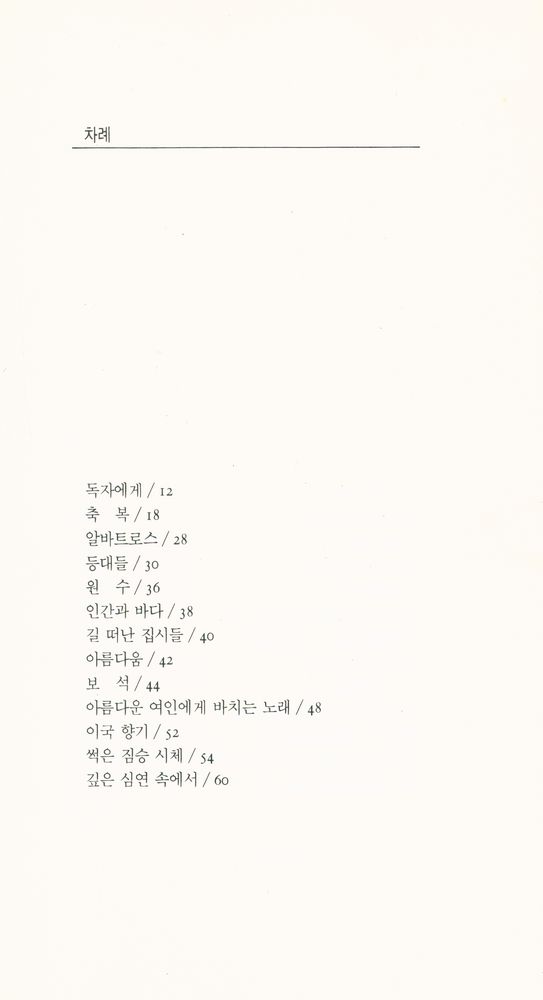 차례
독자에게 / 12
축 복 / 18
알바트로스 / 28
등대들 / 30
원 수 / 36
인간과 바다 / 38
길 떠난 집시들 / 40
아름다움 / 42
보 석 / 44
아름다운 여인에게 바치는 노래 / 48
이국 향기 / 52
썩은 짐승 시체 / 54
깊은 심연 속에서 / 60